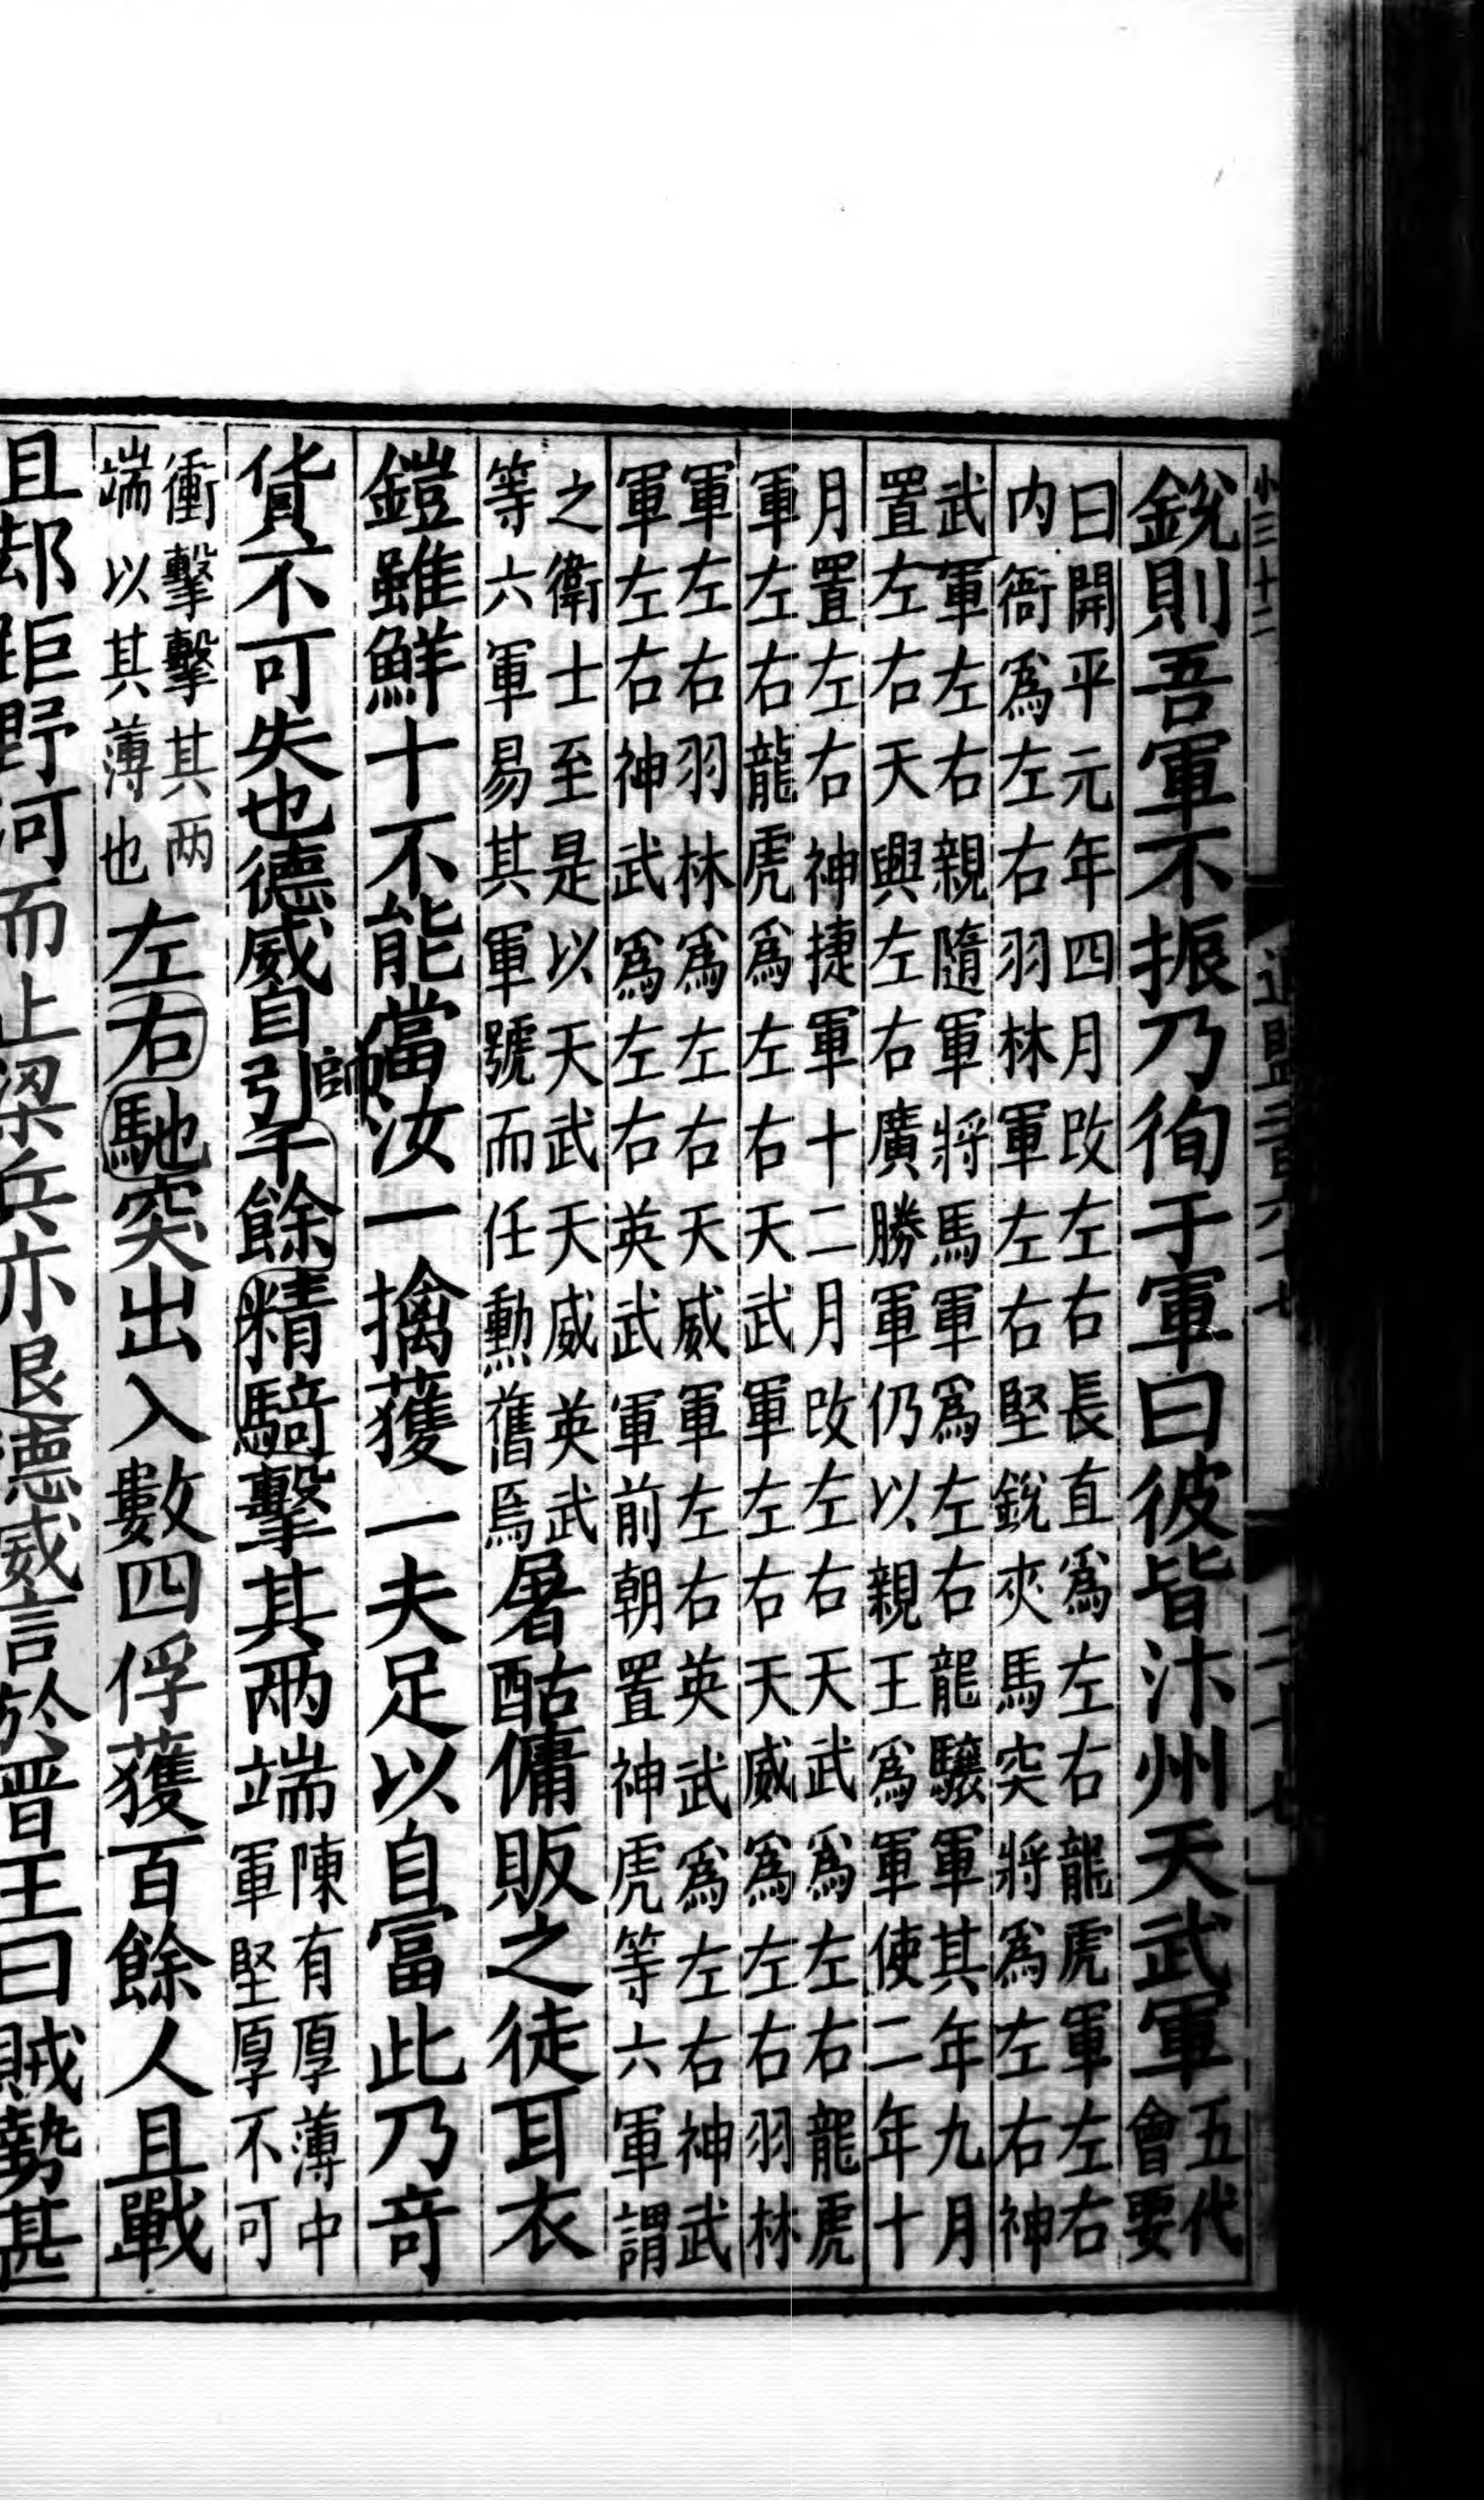 小三十二
二十七
銳則吾軍不振乃徇于軍曰彼皆汴州天武軍
五代
會要
曰開平元年四月改左右長直爲左右龍虎軍左右
内衙爲左右羽林軍左右堅銳夾馬突將爲左右神
武軍左右親隨軍將馬軍爲左右龍驤軍其年九月
置左右天興左右廣勝軍仍以親王爲軍使二年十
月置左右神捷軍十二月改左右天武爲左右龍虎
軍左右龍虎爲左右天武軍左右天威爲左右羽林
軍左右羽林爲左右天威軍左右英武爲左右神武
軍左右神武爲左右英武軍前朝置神虎等六軍謂
之衛士至是以天武天威英武
等六軍易其軍號而任勳舊焉
屠酤傭販之徒耳衣
鎧雖鮮十不能當汝一擒獲一夫足以自富此乃奇
帥
貨不可失也德威自引千餘精騎擊其兩端
陳有厚薄中
軍堅厚不可
衝擊擊其两
端以其薄也
左右馳突出入數四俘獲百餘人且戰
且却距野河而止梁兵亦退德威言於晋王曰賊勢甚